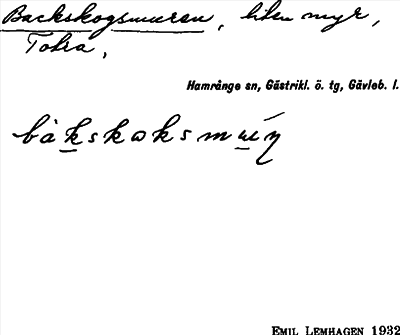 Backskogsmuren, liten myr,
Totra,
Hamrånge sn, Gästrikl. ö. tg, Gävleb. l.
bàkskoksmuén
EMIL LEMHAGEN 1932